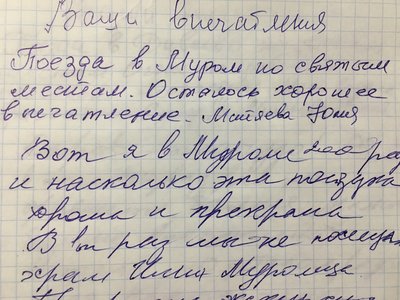 Ваши впечатления
Поезда в Муром по святым
местам. Осталось хорошее
впечатление. Матяева Юлия
Вот я в Муроме раз
и насколько эта поездка
хороша и прекрасна
В раз мы не посещ
храм Ильи Муромца.